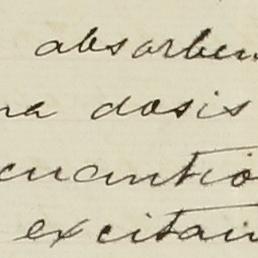 absorben
na dosis
cuantio
excitan